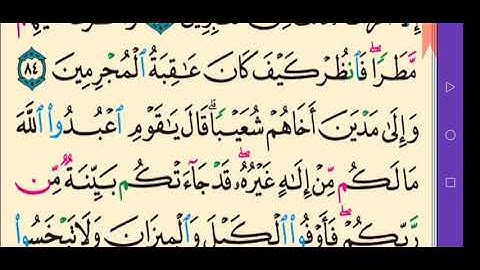 مَّطَرًا ۖ فَٱنظُرْ كَيْفَ كَانَ عَٰقِبَةُ ٱلْمُجْرِمِينَ ٨٤
وَإِلَىٰ مَدْيَنَ أَخَاهُمْ شُعَيْبًا ۗ قَالَ يَٰقَوْمِ ٱعْبُدُوا۟ ٱللَّهَ
مَا لَكُم مِّنْ إِلَٰهٍ غَيْرُهُۥ ۖ قَدْ جَآءَتْكُم بَيِّنَةٌ مِّن
رَّبِّكُمْ ۖ فَأَوْفُوا۟ ٱلْكَيْلَ وَٱلْمِيزَانَ وَلَا تَبْخَسُوا۟